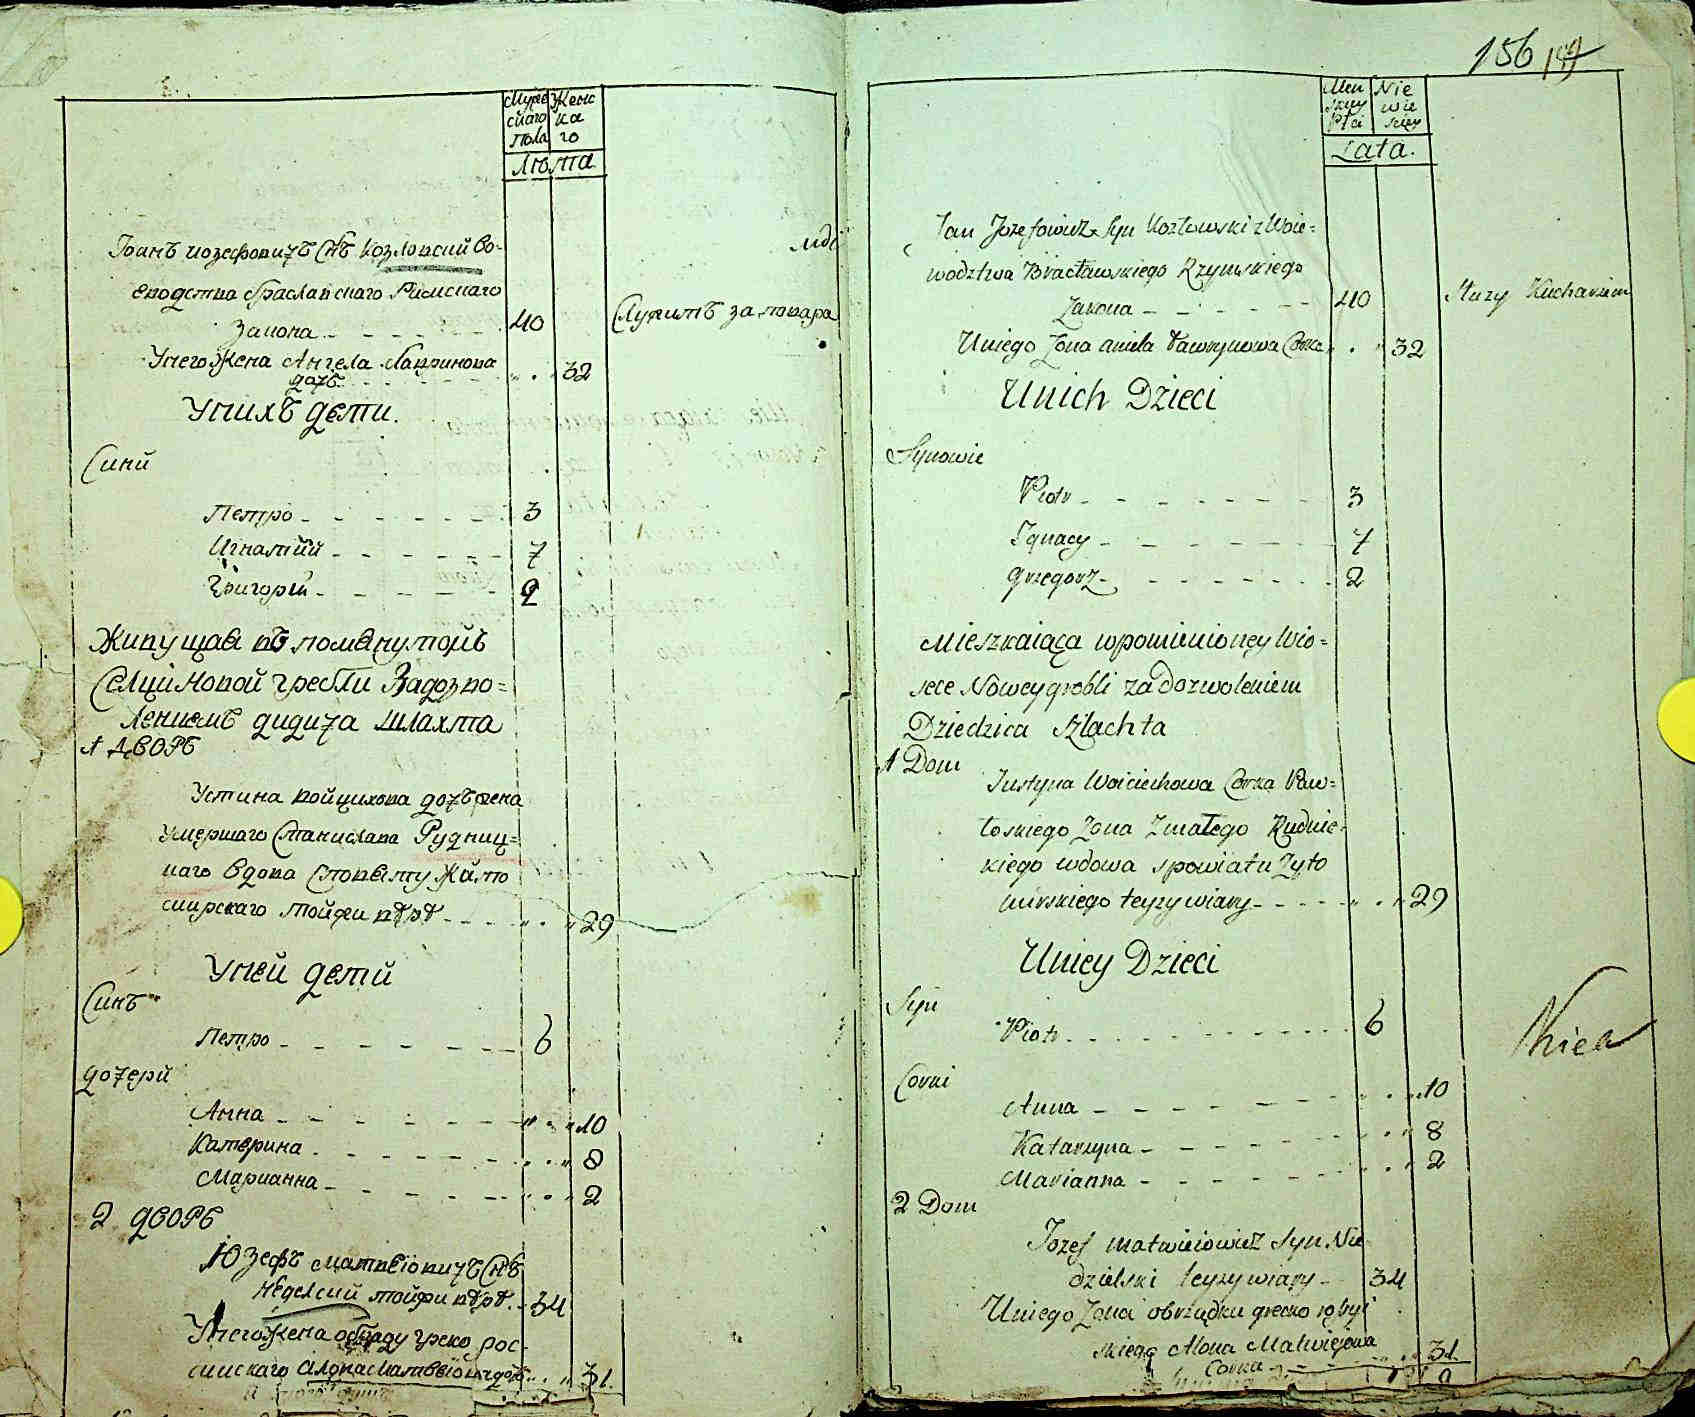 Муже Женс
скаго ка
пола го
Лѣта
Іоанъ иозефовичъ Снъ Козловский во-
еводства браславскаго Римскаго
Закона 40 Служитъ за повара
Унего Жена Ангела Лавринова
дочъ 32
Унихъ дети.
Синй
Петро 3
Игнатий 7
Григорий 2
Живущая въ помянутомъ
Селци Новой гребли Задозво=
лениемъ дидича шляхта
1 ДВОРЪ
Устина войцихова дочъ жена
умершаго Станислава Рудниц=
каго вдова Сповѣту Жито
мирскаго тойжи вѣрѣ 29
Уней детй
Синъ
Петро 6
дочерй
Анна 10
Катерина 8
Марианна 2
2 ДВОРЪ
Юзефъ матвѣіовичъ Снъ
Неделский тойжи вѣрѣ 34
Унего Жена обряду греко рос-
сийскаго Матвѣйова дочъ 31.
156
Men Nie
skiey wie
Płci sciey
Lata.
Jan Jozefowicz Syn Kozłowski z Woie=
wodztwa Bracławskiego Rzymskiego
Zakona 40 Słuzy Kucharzem
Uniego Zona aniela Ławrynowa Corka 32
Unich Dzieci
Synowie
Piotr 3
Ignacy 7
Grzegorz 2
Mieszkaiąca wpomienioney Wio=
sce Nowey grobli za dozwoleniem
Dziedzica Szlachta
1 Dom
Justyna Woiciechowa Corka Paw=
łoskiego Zona Zmałego Rudnic=
kiego wdowa spowiatu Zyto
mirskiego teyzy wiary 29
Uniey Dzieci
Syn
Piotr 6
Corki
Anna 10
Katarzyna 8
Marianna 2
2 Dom
Jozef matwieiowicz Syn Nie=
dzielski teyzy wiary 34
Uniego Zona obrządku grecko rossyi
skiego Matwiejowa
Corka 31